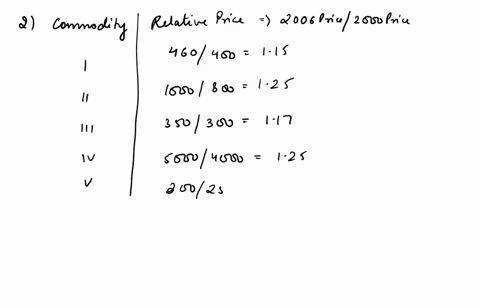 2) Commodity Relative Price => 2006 Price/2000 Price
I 460/400 = 1.15
II 1000/800 = 1.25
III 350/300 = 1.17
IV 5000/4000 = 1.25
V 200/25